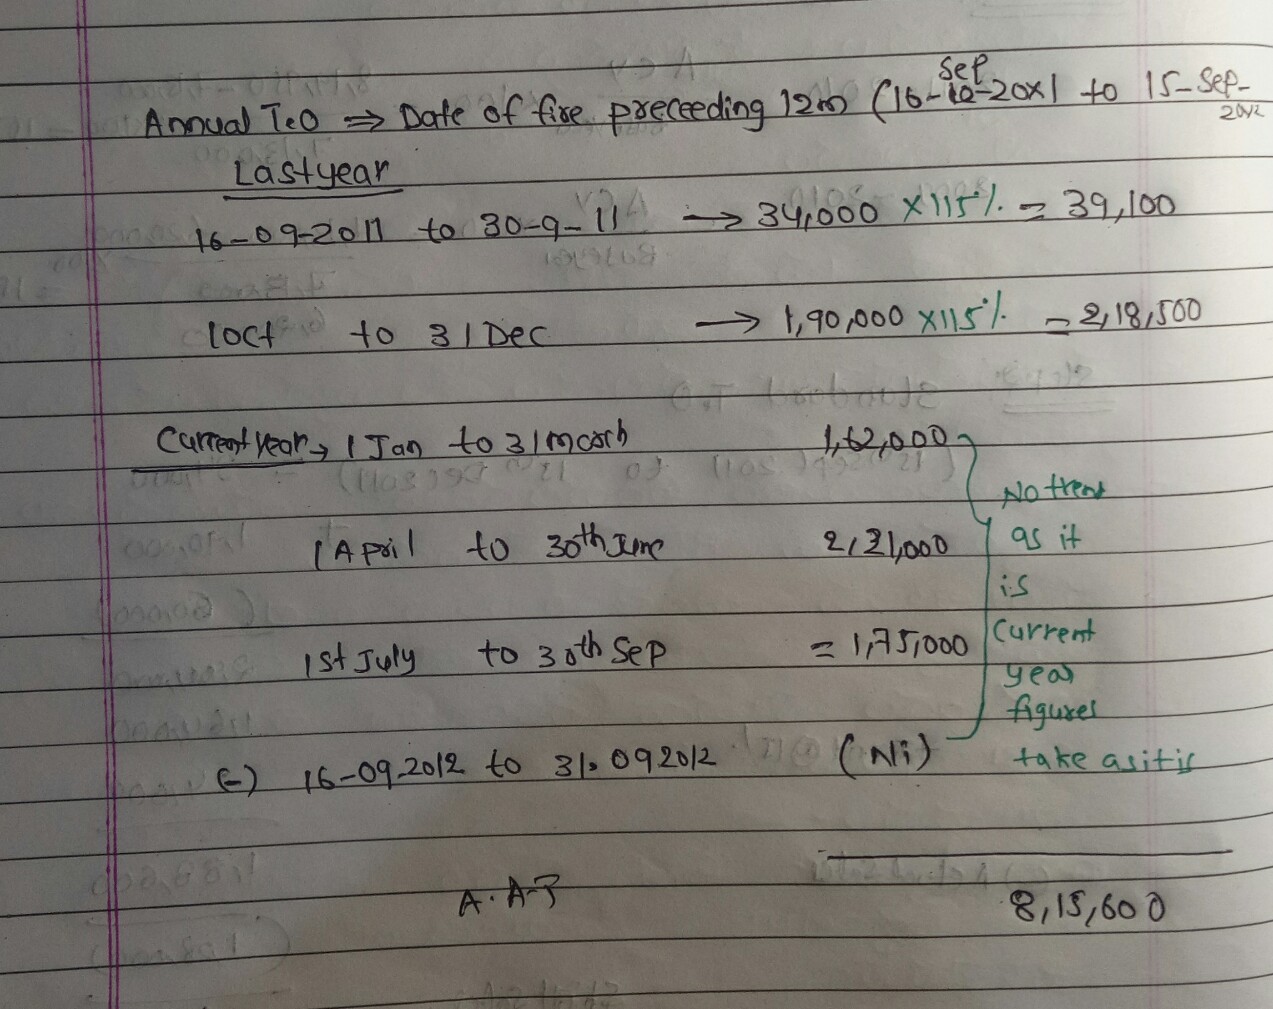 Annual T.O ⇒ Date of fire preceeding 12m (16-Sep-20x1 to 15-Sep-20x2
Last year
16-09-2011 to 30-9-11 → 34,000 X115% = 39,100
1 Oct to 31 Dec → 1,90,000 X115% = 2,18,500
Current Year → 1 Jan to 31 march 1,62,000
No
1 April to 30th June 2,21,000 as it
is
1st July to 30th Sep = 1,75,000 Current
year
figures
(-) 16-09-2012 to 31.092012 (Nil) take as it is
A.A.T 8,15,600